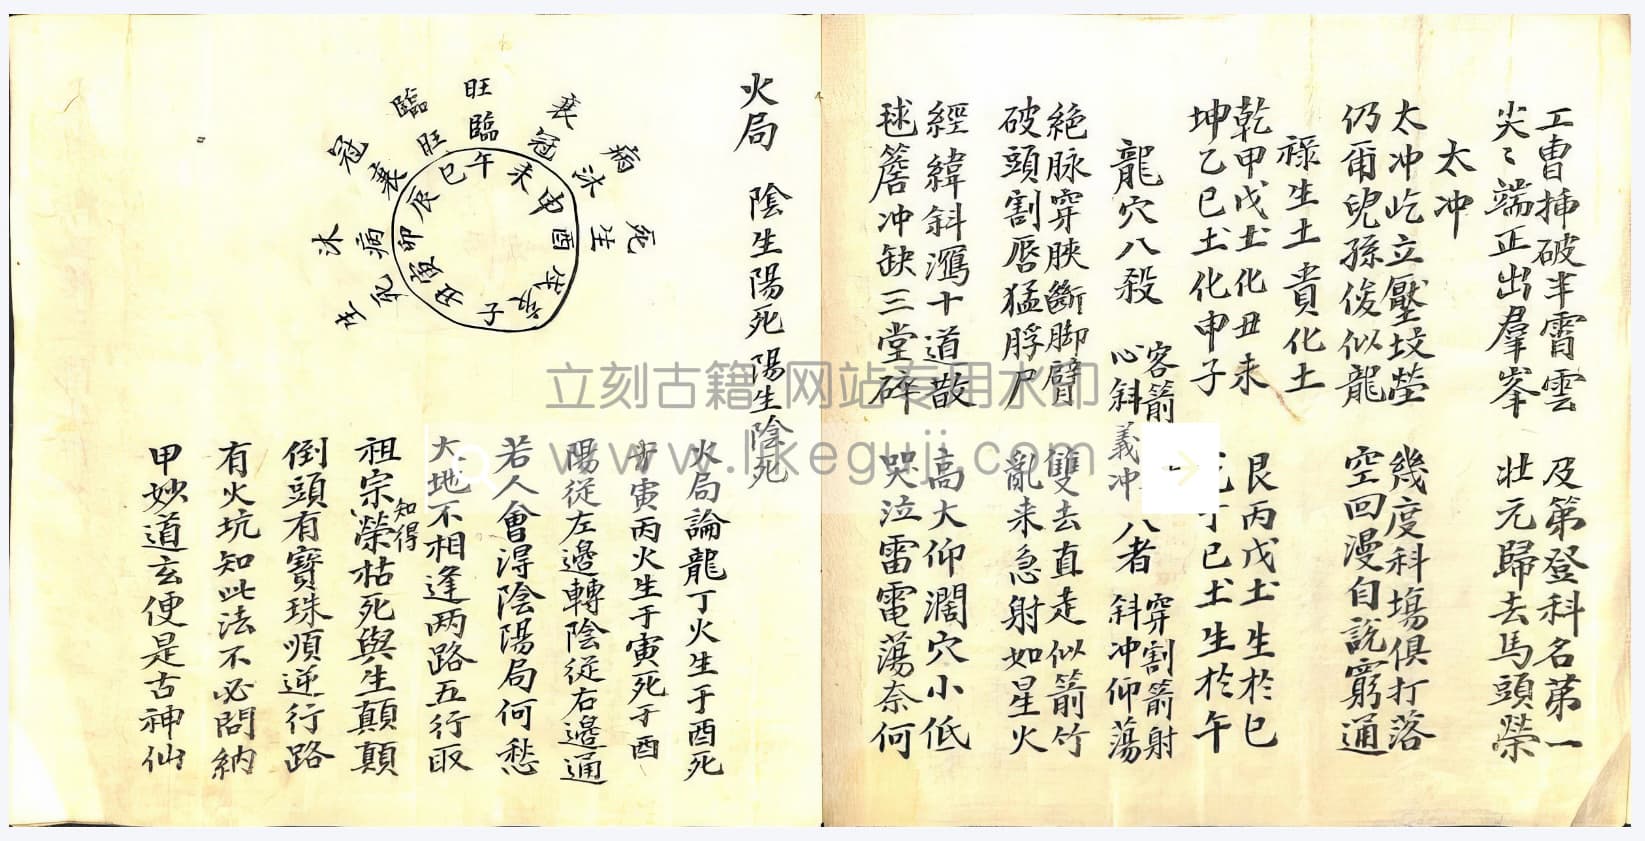 工曹揷破半霄雲 及第登科名第一
尖〻端正出羣峯 壯元歸去馬頭榮
太冲
太冲屹立壓坟塋 幾度科塲俱打落
仍爾兒孫俊似龍 空回漫自說窮通
祿生土貴化土
乾甲戊土化丑未 艮丙戊土生於巳
坤乙巳土化申子 丁巳土生於午
龍穴八殺 客箭心斜義冲 八者 穿割箭射斜冲仰蕩
絶脉穿脥斷脚臂 雙去直走似箭竹
破頭割唇猛脬尸 亂来急射如星火
經緯斜瀉十道散 高大仰濶穴小低
毬簷冲缺三堂碎 哭泣雷電蕩奈何
火局 陰生陽死陽生陰死
旺
臨
衰
冠
病
沐
死
生
臨
旺
冠
衰
沐
病
生
死
午
未
申
酉
戌
亥
子
丑
寅
卯
辰
巳
火局論龍丁火生于酉死
于寅丙火生于寅死于酉
陽從左邊轉陰從右邊通
若人會得陰陽局何愁
大地不相逢两路五行取
祖宗知得榮枯死與生顛顛
倒頭有寶珠順逆行路
有火坑知此法不必問納
甲妙道玄便是古神仙
立刻古籍 网站专用水印
www.likeguji.com